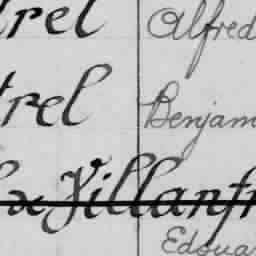 trel Alfred
trel Benjam
x Villanfr
Edoua